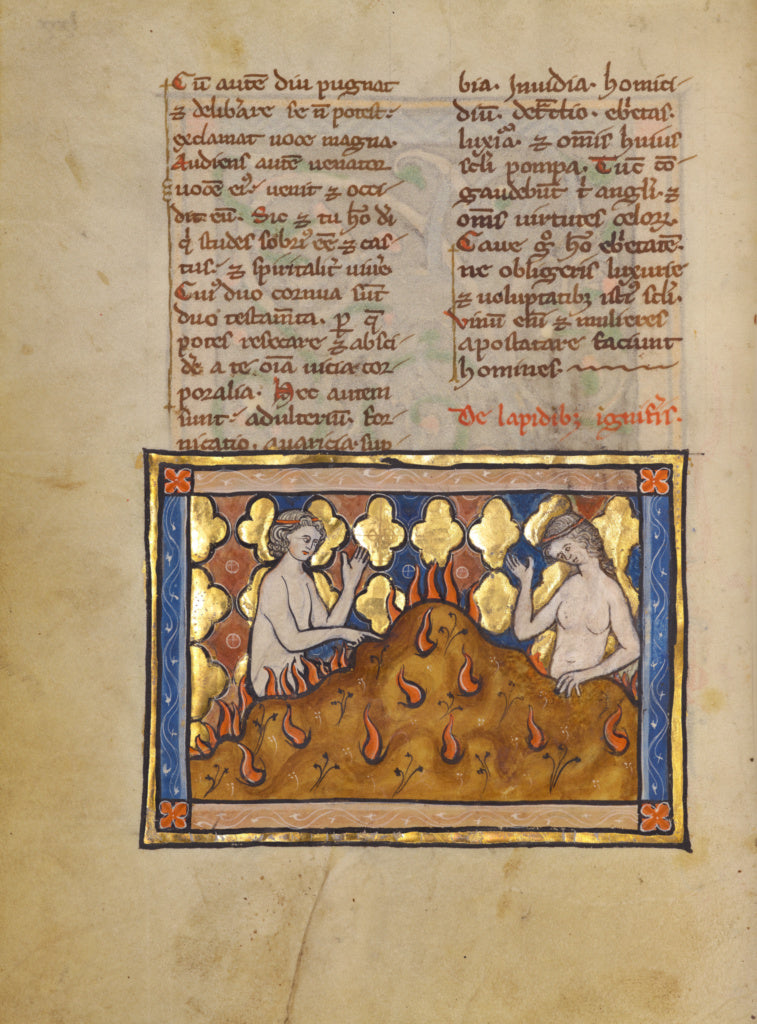 Cū autē diu pugnat
⁊ delib̄are se n̄ potest.
exclamat uoce magna.
Audiens autē uenator
uocē ei᷒. uenit ⁊ occi-
dit eū. Sic ⁊ tu hō dī
q̇ studes sobri᷒ eē ⁊ cas-
tus. ⁊ spiritalit᷑ uiuē
Cui᷒ duo cornua sūt
duo testam̄ta. ꝑ q̄
potes resecare ⁊ absci-
dē a te oīa uicia cor-
poralia. Hec autem
sunt. adulteriū. for-
nicatio. auaricia. sup-
bia. Inuidia. homici-
diū. det᷑ctio. eb᷑etas.
luxīa. ⁊ omīs huius
sc̄li pompa. Tūc cō-
gaudebūt t̄ angl̄i. ⁊
om̄s uirtutes celoꝝ.
Caue g̊ hō eb᷑etatē.
ne obligeris luxurie
⁊ uoluptatibꝫ isti᷒ sc̄li.
vinū enī ⁊ mulieres
apostatare faciunt
homines.
De lapidibꝫ ignif᷑is.